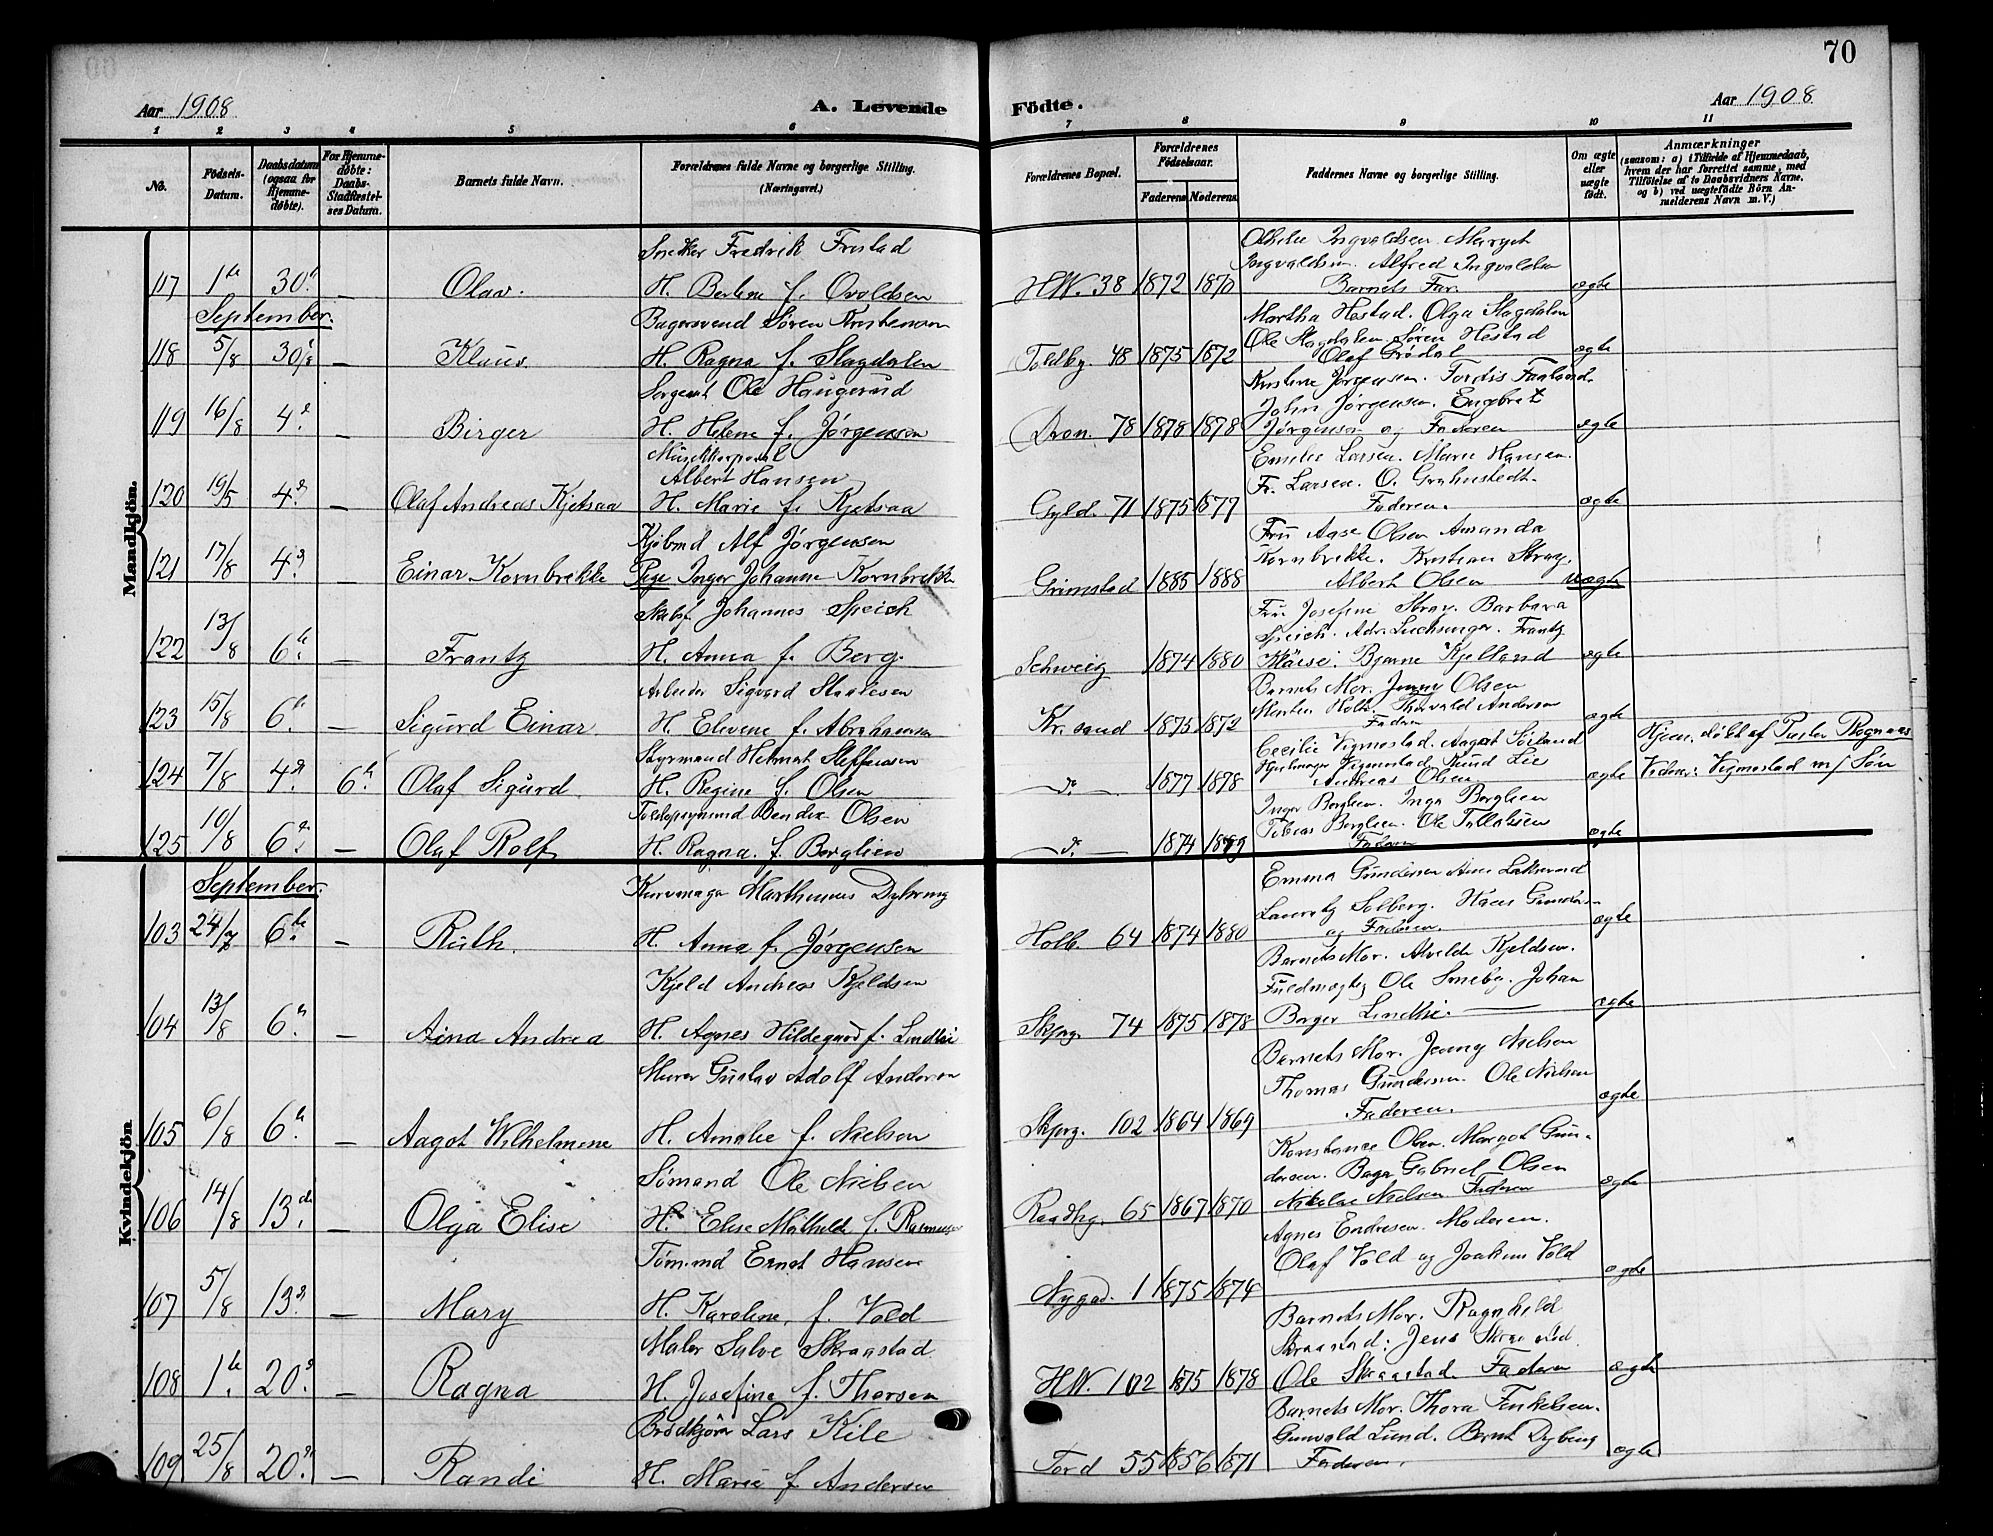 70
Aar 1908
A. Levende
Födte.
Aar 1908
1 2 3 4 5 6 7 8 9 10 11
No.
Födsels-Datum.
Daabsdatum (ogsaa for Hjemme-döbte).
For Hjemme-døbte: Daabs-Stadfæstel-ses Datum.
Barnets fulde Navn.
Forældrenes fulde Navne og borgerlige Stilling. (Næringsvei.)
Forældrenes Bopæl.
Forældrenes Födselsaar.
Faderens Moderens
Faddernes Navne og borgerlige Stilling.
Om ægte eller uægte født.
Anmærkninger
(saasom: a) i Tilfælde af Hjemmedaab, hvem der har forrettet samme, med Tilföielse af to Daabsvidners Navne, og b) ved uægtefödte Börn An-melderens Navn m. V.)
Mandkjön.
Snekker Fredrik Frestad
Othelie Ingvaldsen. Margit
Ingvaldsen. Alfred Ingvaldsen
117 1ste 30. — Olav. H. Berlene f. Ovoldsen H.W. 38 1872 1870 Barnets Far. ægte
September.
Bagersvend Søren Kristensen
Martha Hestad. Olga Slagdalen
Ole Slagdalen Søren Hestad
118 5/8 30/8 — Klaus. H. Ragna f. Slagdalen Toldby. 48 1875 1872 Olaf Grødal ægte
Sergent Ole Haugerud
Kristine Jørgensen. Tordis Faaland.
John Jørgensen. Engbret
119 16/8 4. — Birger H. Helene f. Jørgensen Dron. 78 1878 1878 Jørgensen og Faderen ægte
Musikkorporal
Albert Hansen
Emilie Larsen. Marie Hansen.
Fr. Larsen. O. Grahnstedt.
120 19/5 4. — Olaf Andreas Kjetsaa H. Marie f. Kjetsaa Gyld. 71 1875 1877 Faderen. ægte
Kjøbmd Alf Jørgensen
Fru Aase Olsen Amanda
Kornbrekke. Kristian Stray.
121 17/8 4. — Einar Kornbrekke Pige Inger Johanne Kornbrekke Grimstad 1885 1888 Albert Olsen uægte
Johannes Speich
Fru Josefine Stray. Barbara
Speich. Adr. Luchsinger. Frantz
122 13/8 6. — Frantz H. Anna f. Berg. Schweiz 1874 1880 Bjarne Kjelland ægte
Arbeider Sigvard Staalesen
Barnets Mor. Jenny Olsen
Morten Holte. Thorvald Andersen
123 15/8 6. — Sigurd Einar H. Elevene f. Abrahamsen Kr. sand 1875 1872 Faderen ægte
Styrmand Helmat Steffensen
Cecilie Vigmostad. Aagot Sørland
Vigmostad Knud Lie
124 7/8 4. 6. Olaf Sigurd H. Regine f. Olsen — do. — 1877 1878 Andreas Olsen ægte
Hjem. døbt af Pastor Rognaas
Vidner: Vigmostad m/ Søn
Bendix Olsen
Inger Borglien. Inga Borglien
Tobias Borglien. Ole Tellefsen
125 10/8 6. — Olaf Rolf H. Ragna. f. Borglien — do. — 1874 1879 Faderen ægte
Kvindekjön
September.
Kurvmager Marthinius Dybvig
Emma Gundersen
Lauritz Solberg. Hans Gundersen
103 24/7 6te — Ruth. H. Anna f. Jørgensen Holb. 64 1874 1880 og Faderen. ægte
Kjeld Andreas Kjeldsen
Barnets Mor. Alvilde Kjeldsen.
Fuldmægtig Ole Smeby. Johan
104 13/8 6. — Aina Andrea H. Agnes Hildegard f. Lindtvi Skjerg. 74 1875 1878 Borger Lindtvi. — ægte
Murer Gustav Adolf Andersen
Barnets Mor. Jenny Nielsen
Thomas Gundersen. Ole Nielsen
105 6/8 6. — Aagot Wilhelmine H. Amalie f. Nielsen Skjerg. 102 1864 1869 Faderen. ægte
Sømand Ole Nielsen
Konstance Olsen. Margot Gun-
dersen. Bager Gabriel Olsen
106 14/8 13de. — Olga Elise H. Elise Mathilde f. Rasmussen Raadhg. 65 1867 1870 Nikolai Nielsen Faderen ægte
Tømmd Ernst Hansen
Agnes Endresen. Moderen.
Olaf Vold og Joakim Vold
107 5/8 13. — Mary H. Karoline, f. Vold Nygad. 1 1875 1874 ægte
Maler Salve Skraastad
Barnets Mor. Ragnhild
Skraastad. Jens Skraastad
108 1ste. 20. — Ragna H. Josefine f. Thorsen H.W. 102 1875 1878 Ole Skraastad. Faderen ægte
Brødkjører Lars Kile
Barnets Mor. Thora Tenkelsen.
Gunvald Lund. Bernt Dybing
109 25/8 20. — Randi H. Marie f. Andersen Tord 55 1856 1871 Faderen. ægte